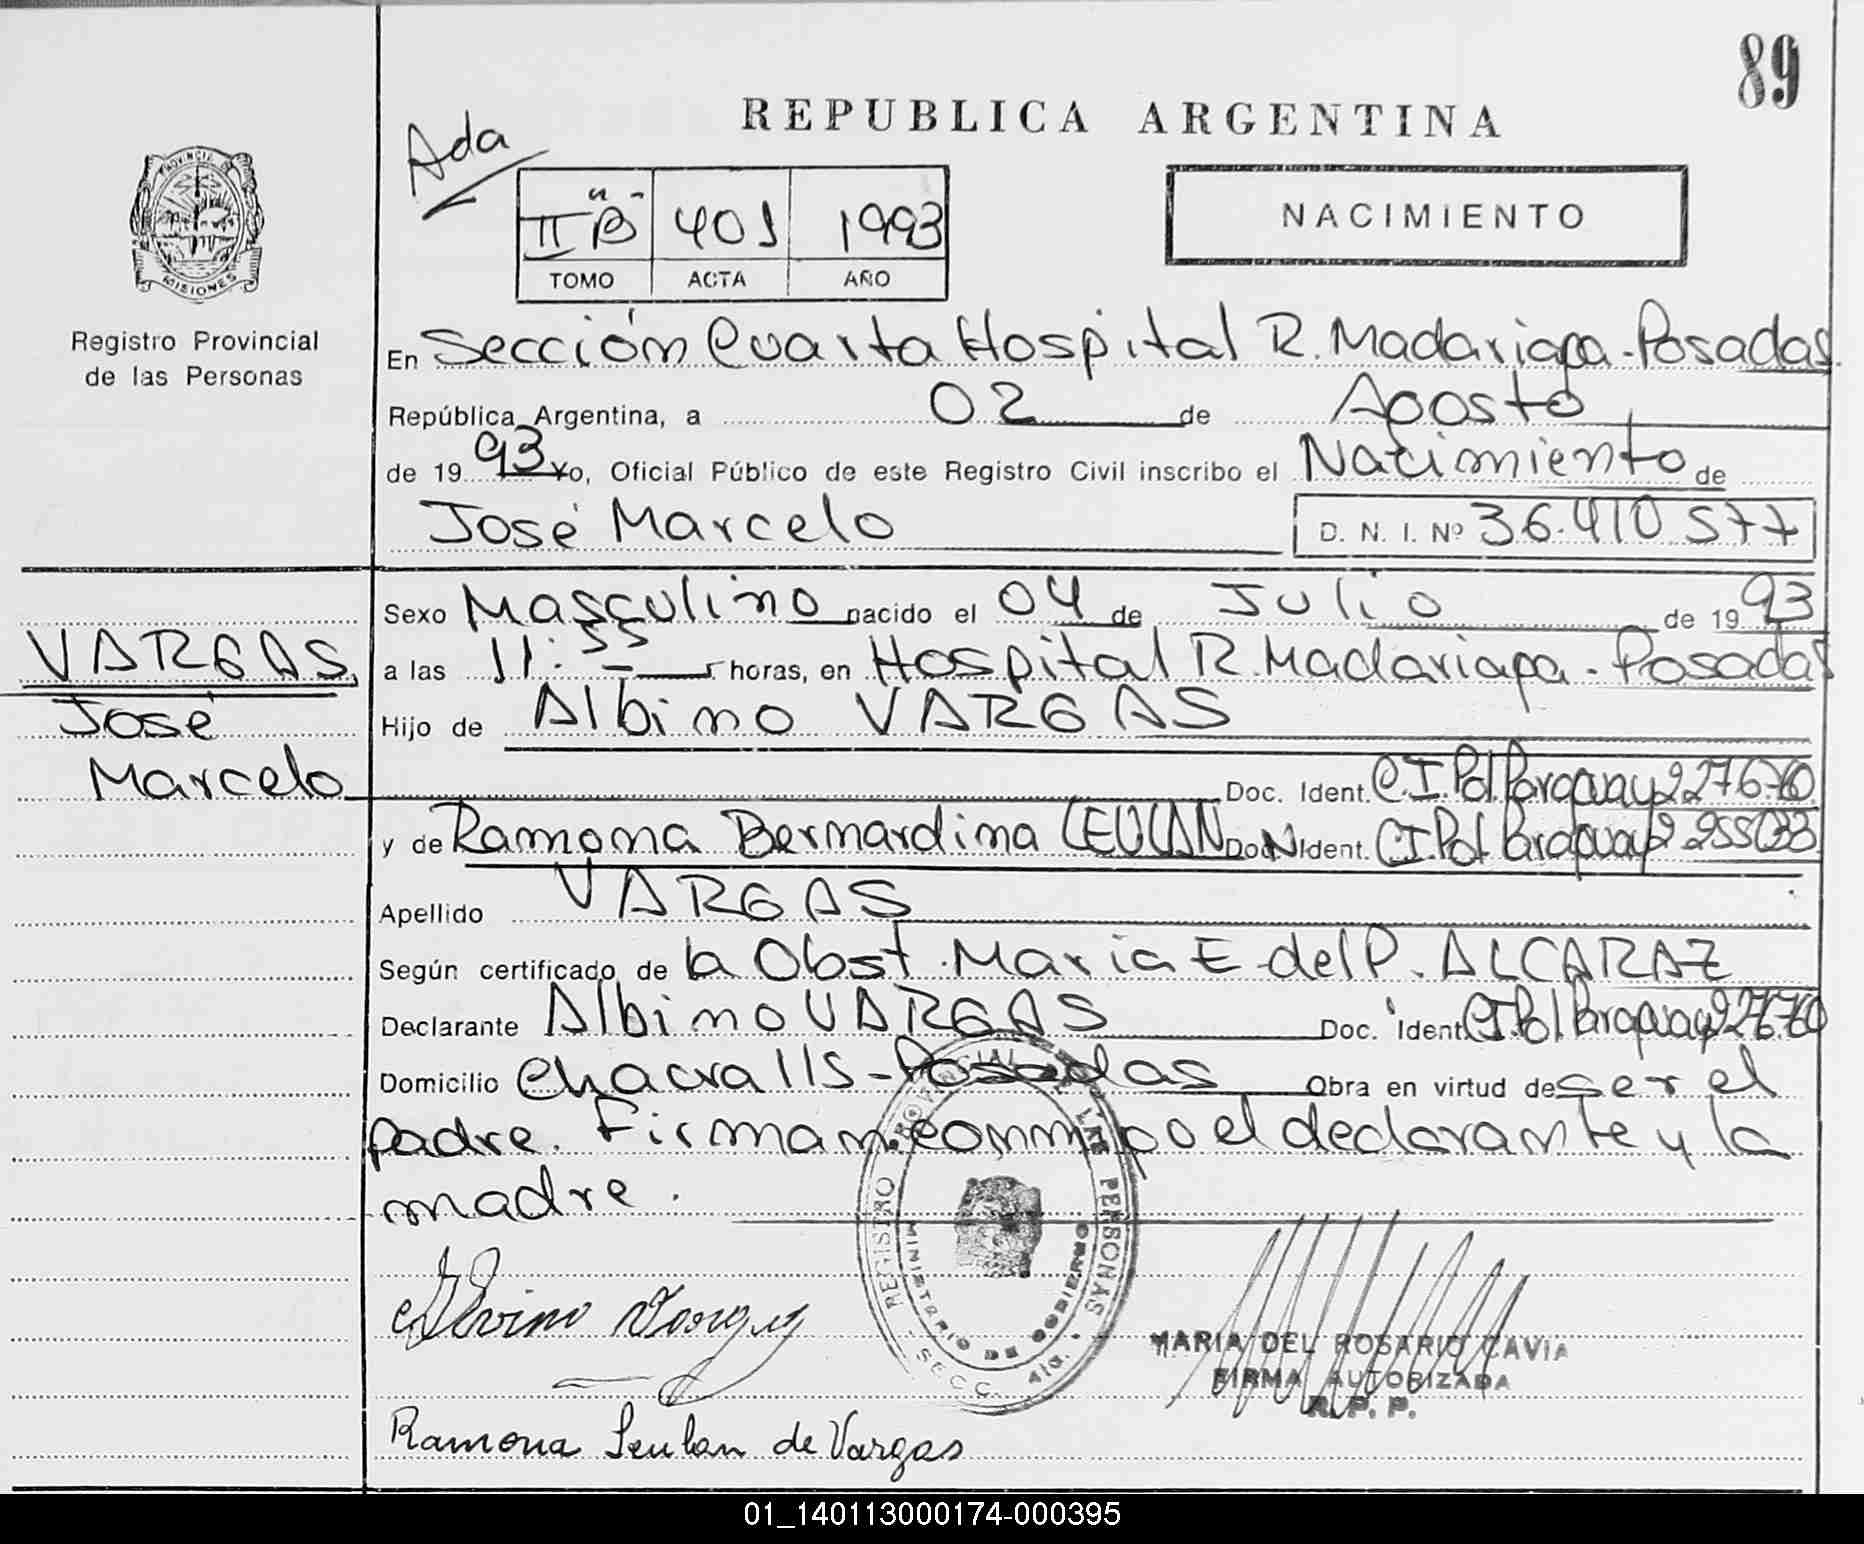 89
REPUBLICA ARGENTINA
Ada
II "B" 401 1993
TOMO ACTA AÑO
NACIMIENTO
PROVINCIA DE
MISIONES
Registro Provincial
de las Personas
En Sección Cuarta Hospital R. Madariaga - Posadas
República Argentina, a 02 de Agosto
de 1993 Yo, Oficial Público de este Registro Civil inscribo el Nacimiento de
José Marcelo D. N. I. Nº 36.410.577
Sexo Masculino nacido el 04 de Julio de 1993
VARGAS,
a las 11:55 horas, en Hospital R. Madariaga - Posadas
José
Hijo de Albino VARGAS
Marcelo
Doc. Ident. C.I. Pol. Paraguay 227670
y de Ramona Bernardina Doc. Ident. C.I. Pol. Paraguay
Apellido VARGAS
Según certificado de la Obst. Maria E. del P. ALCARAZ
Declarante Albino VARGAS Doc. Ident. C.I. Pol. Paraguay
Domicilio Chacra 115 - Posadas Obra en virtud de ser el
padre. Firman conmigo el declarante y la
madre.
REGISTRO PROVINCIAL DE LAS PERSONAS
MINISTERIO DE GOBIERNO
SECC. 4ta.
Vargas
MARIA DEL ROSARIO CAVIA
FIRMA AUTORIZADA
R. P. P.
Ramona Leulan de Vargas
01_140113000174-000395